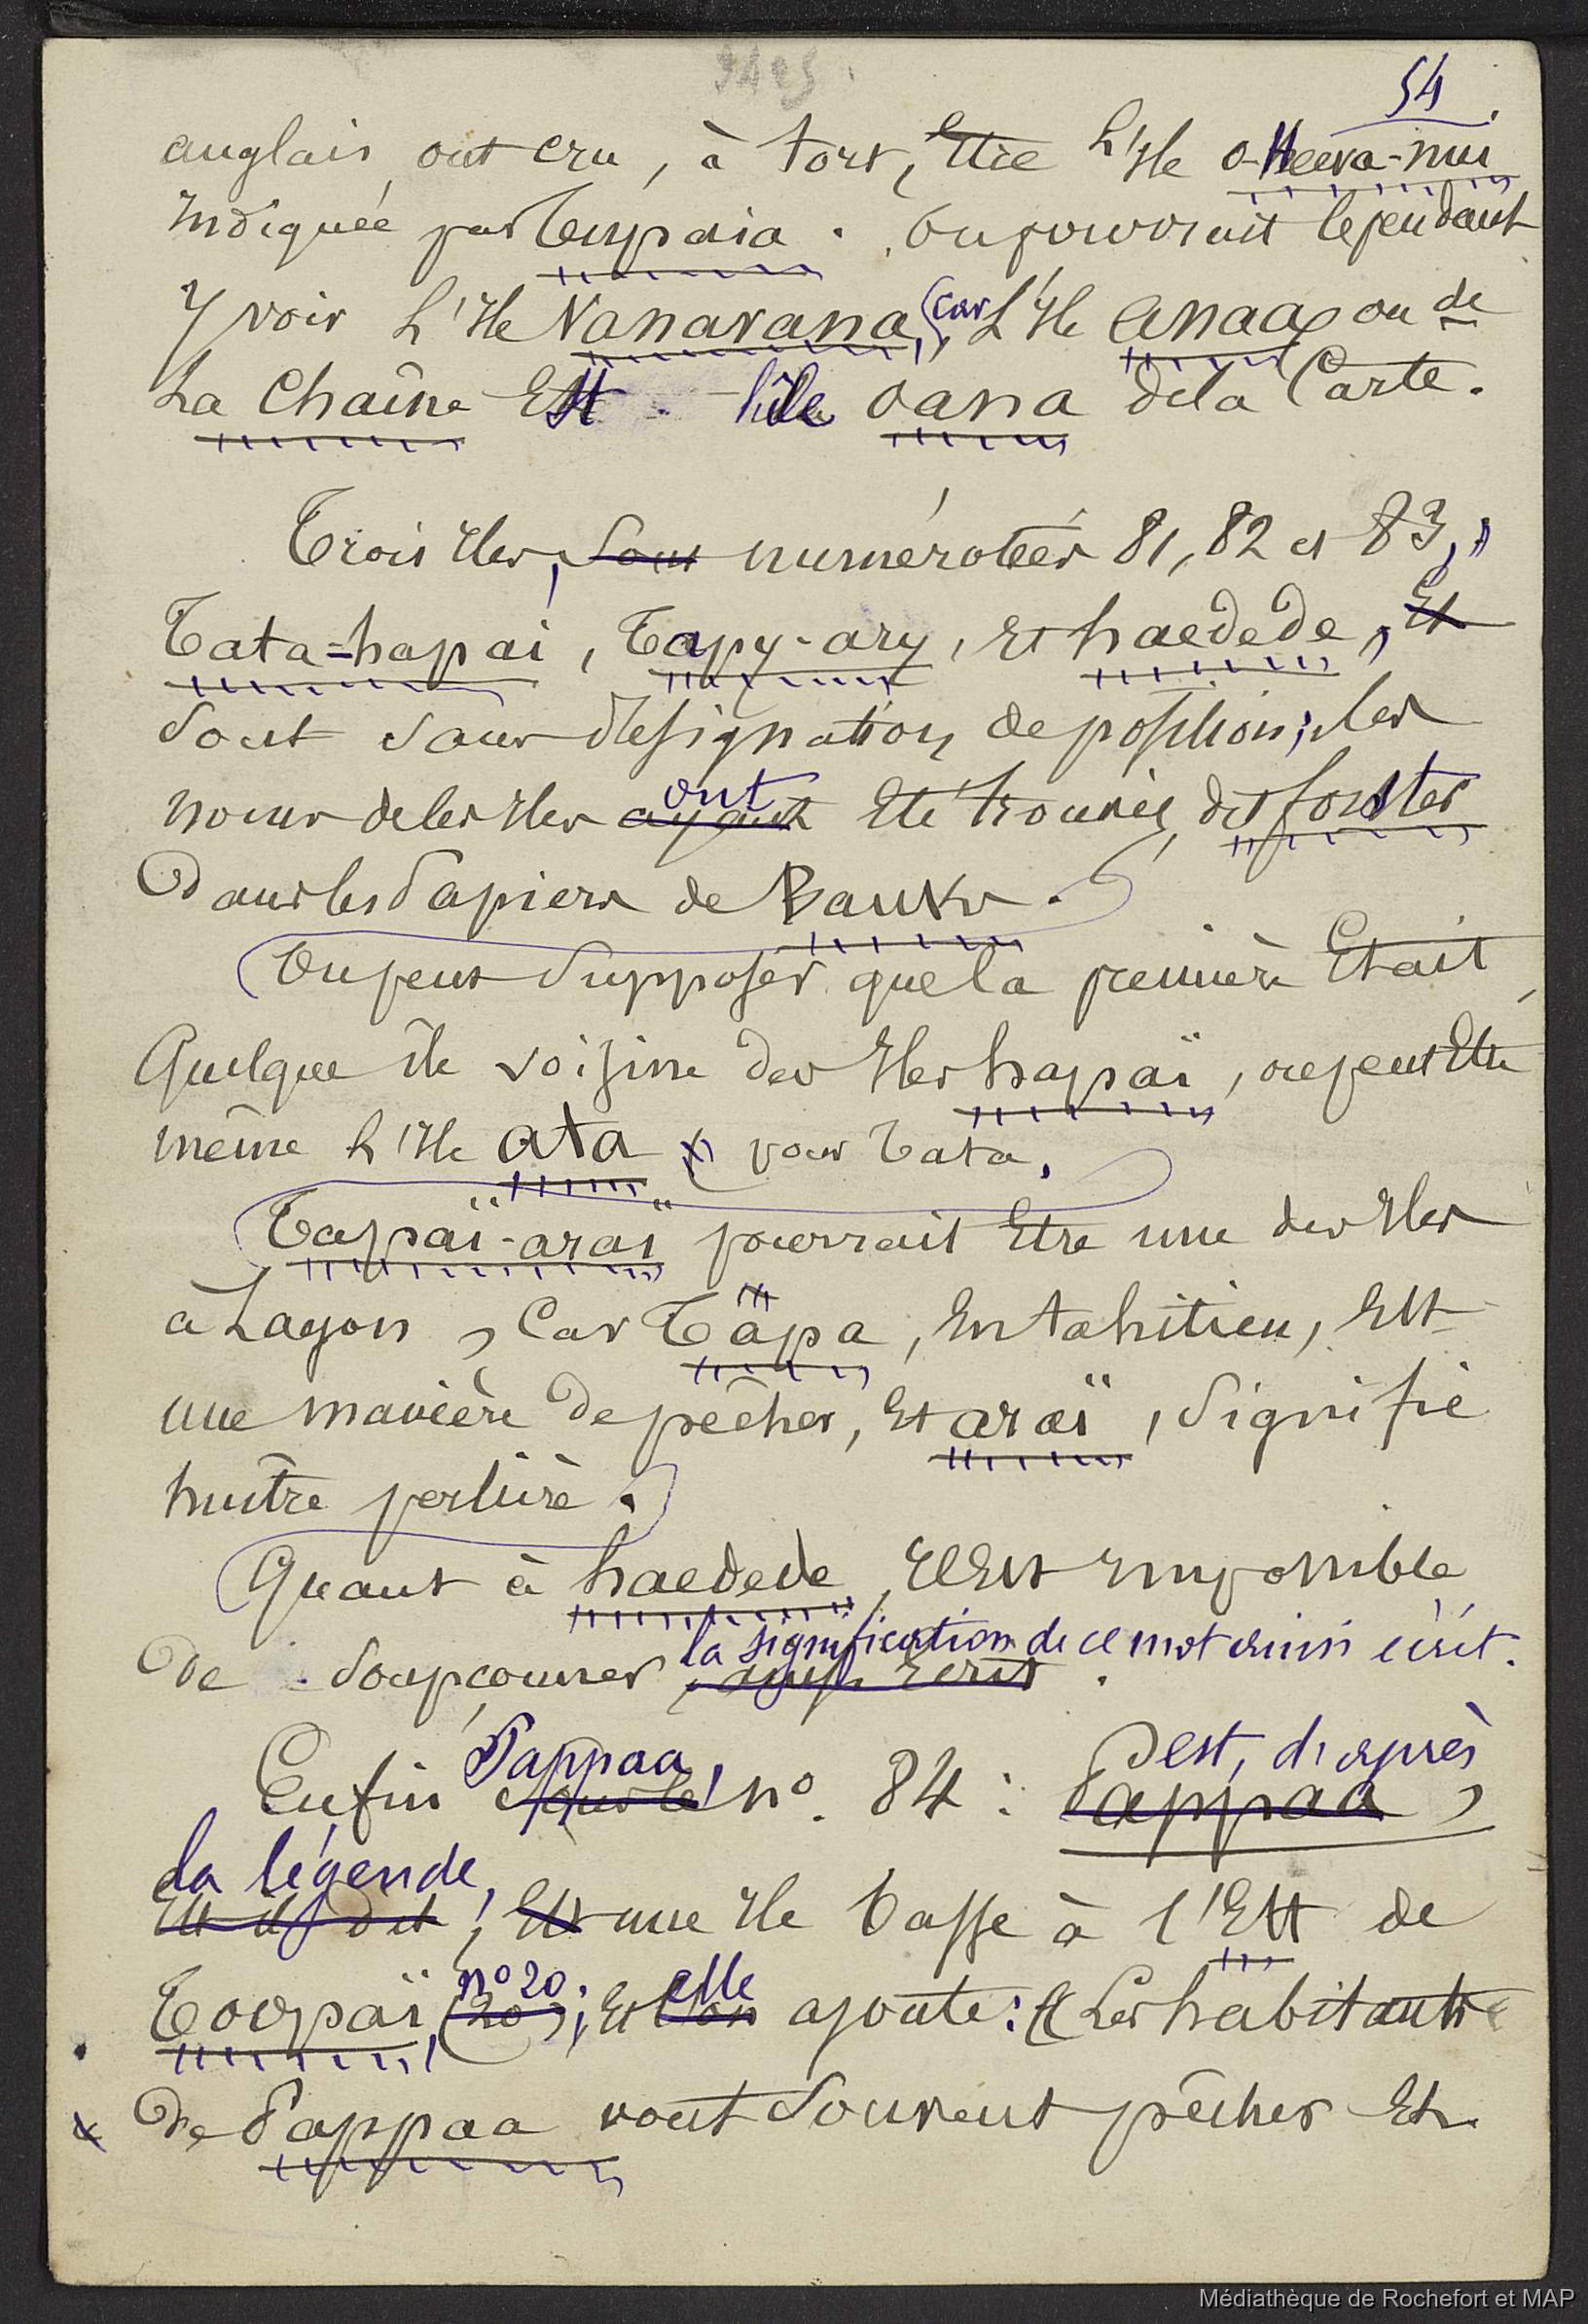 3425
54
anglais, ont cru, à tort, Etre L'Ile o-Heeva-nui
Indiquée par Tuypaia. On pourrait Cependant
Y voir L'Ile Nanavana, (car L'Ile anaa, ou de
La Chaîne Est l'île oana de la Carte.
Trois Iles, Sous numérotées 81, 82 et 83,
Tata=hapai, Tapy-ary, Et haedede, Et
Sont Sans désignation de position; les
noms de ces Iles ayant ont Eté trouvés, dit forster
Dans les Papiers de Banks.
On peut Supposer que la première Etait
Quelque île voisine des Iles hapaï, ou peut Etre
même L'Ile ata pour Tata.
Tapaï-araï pourrait Etre une des Iles
à Lagon, Car Tàpa, En tahitien, Est
une manière de pêcher, Et araï, Signifie
huître perlière.
Quant à haedede, Il Est Impossible
la signification de ce mot ainsi écrit.
De Soupçonner, ainsi Ecrit.
Pappaa, est, d'après
Enfin sous le no. 84: Pappaa,
la légende,
Est il dit, Est une Ile basse à l'Est de
no 20; elle
Toopaï, (20), Et l'on ajoute: "Les habitants
De Pappaa vont Souvent pêcher Et
Médiathèque de Rochefort et MAP